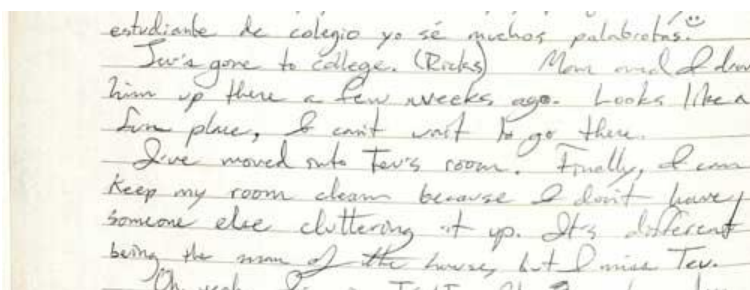 estudiante de colegio yo sé muchos palabrotas.
Tev's gone to college. (Ricks) Mom and I drove
him up there a few weeks ago. Looks like a
fun place, I can't wait to go there.
I've moved into Tev's room. Finally, I can
keep my room clean because I don't have
someone else cluttering it up. It's different
being the man of the house, but I miss Tev.
Oh yeah, I'm